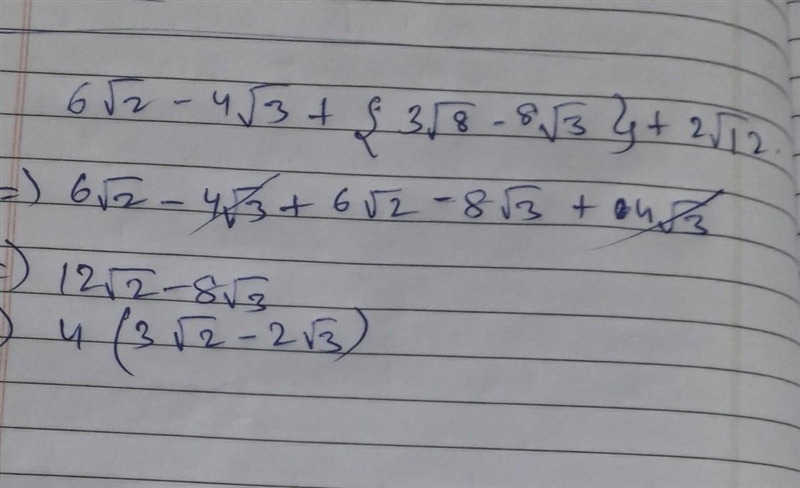 6√2 - 4√3 + { 3√8 - 8√3 } + 2√12.
=) 6√2 - 4√3 + 6√2 - 8√3 + 4√3
=) 12√2 - 8√3
) 4 (3√2 - 2√3)